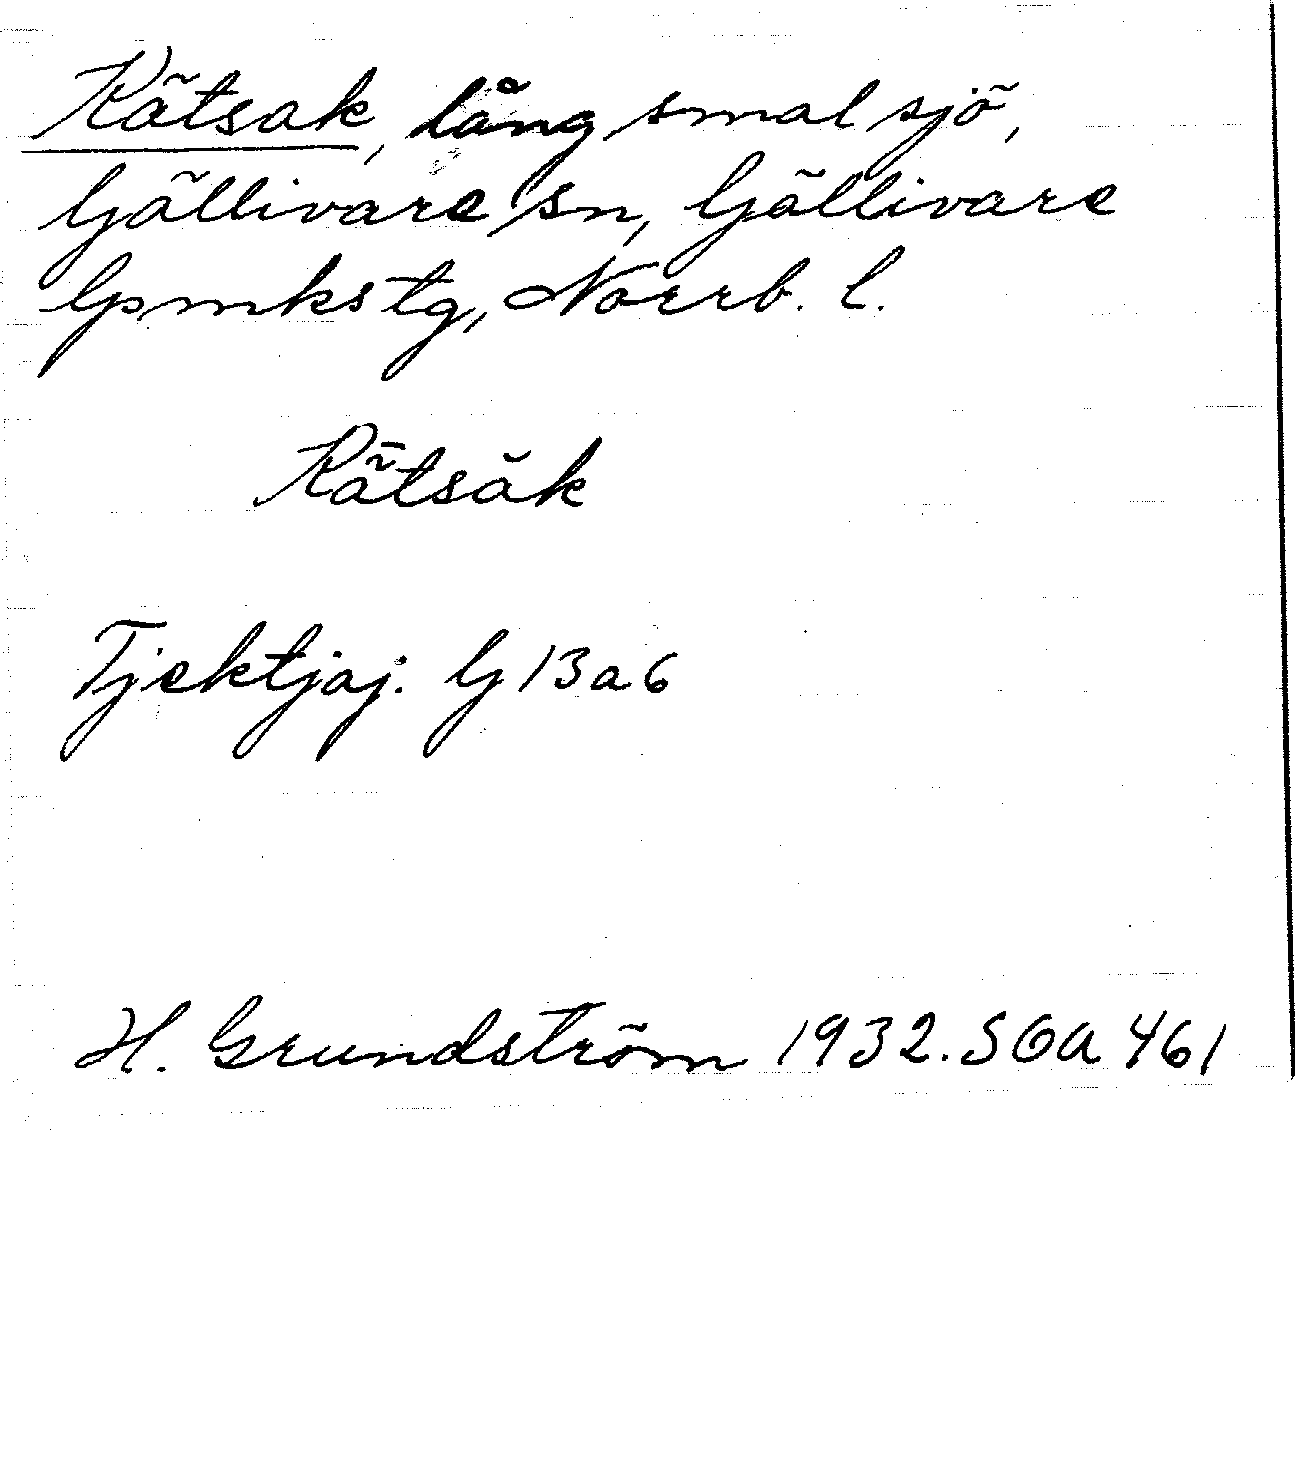 Kätsak, lång smal sjö,
Gällivare sn, Gällivare
lpmkstg, Norrb. l.
Kǟtsăk
Tjektjaj. G 13 a 6
H. Grundström 1932. SOA 461